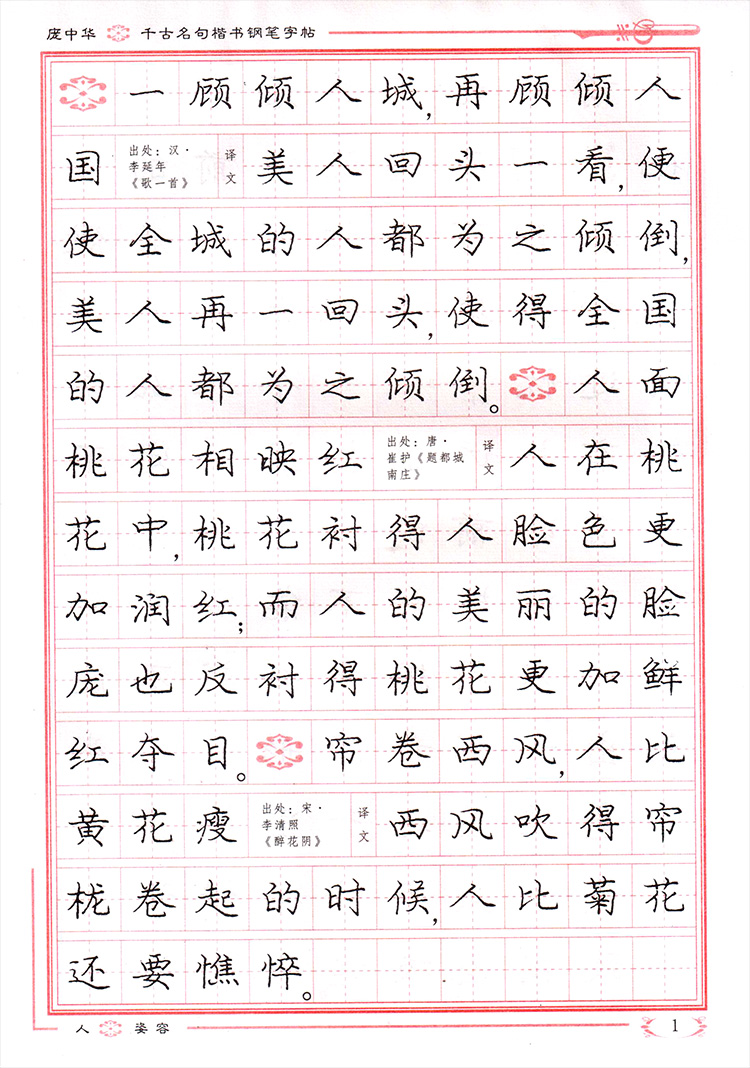 庞中华 千古名句楷书钢笔字帖
一顾倾人城，再顾倾人
国 出处：汉·李延年《歌一首》 译文 美人回头一看，便
使全城的人都为之倾倒，
美人再一回头，使得全国
的人都为之倾倒。人面
桃花相映红 出处：唐·崔护《题都城南庄》 译文 人在桃
花中，桃花衬得人脸色更
加润红；而人的美丽的脸
庞也反衬得桃花更加鲜
红夺目。帘卷西风，人比
黄花瘦 出处：宋·李清照《醉花阴》 译文 西风吹得帘
栊卷起的时候，人比菊花
还要憔悴。
人 姿容 1